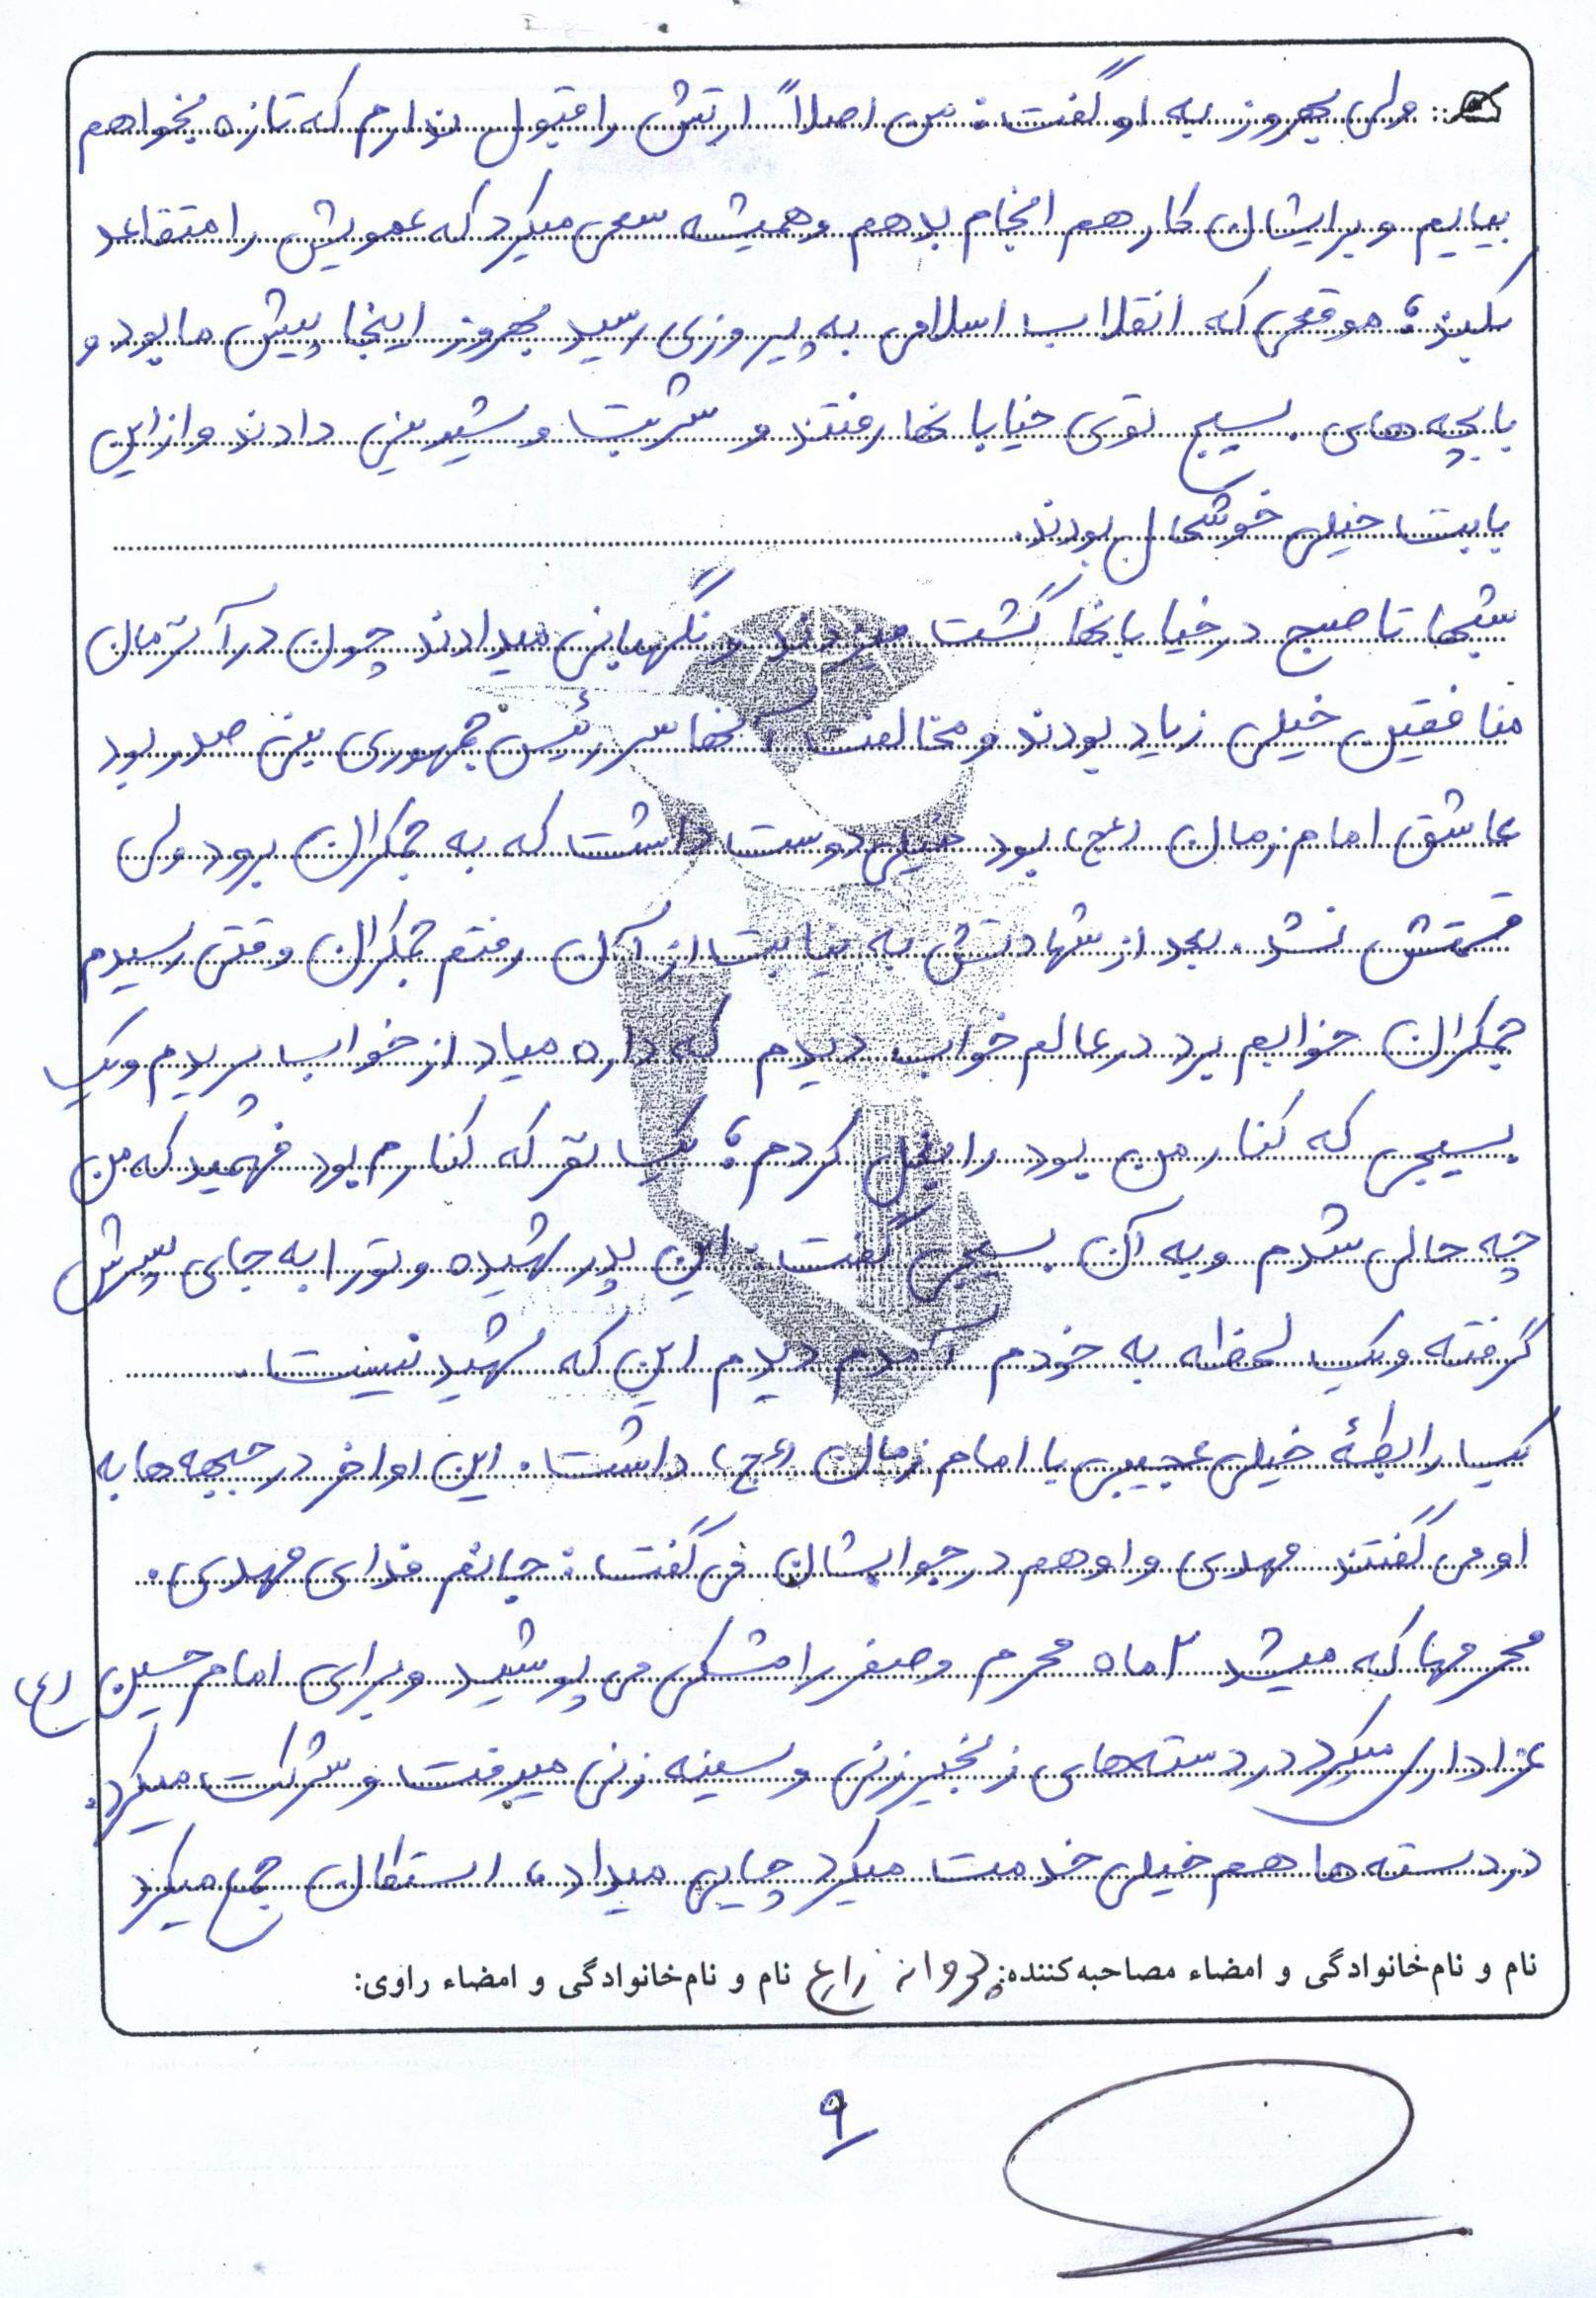 ولی بهروز به او گفت: من اصلاً ارتش را قبول ندارم که تازه بخواهم
بیایم و برایشان کار هم انجام بدهم و همیشه سعی میکرد که عمویش را متقاعد
بکند؛ موقعی که انقلاب اسلامی به پیروزی رسید بهروز اینجا پیش ما بود و
با بچه های بسیج توی خیابانها رفتند و شربت و شیرینی دادند و از این
بابت خیلی خوشحال بودند.
شبها تا صبح در خیابانها گشت میزدند و نگهبانی میدادند چون در آنزمان
منافقین خیلی زیاد بودند و مخالفت آنها سر رئیس جمهوری بنی صدر بود
عاشق امام زمان (عج) بود خیلی دوست داشت که به جمکران برود ولی
قسمتش نشد. بعد از شهادتش به نیابت از آن رفتم جمکران وقتی رسیدم
جمکران خوابم برد در عالم خواب دیدم که داره میاد از خواب پریدم و یک
بسیجی که کنار من بود را بغل کردم؛ یک نفر که کنارم بود فهمید که من
چه حالی شدم و به آن بسیجی گفت: این پدر شهیده و تو را به جای پسرش
گرفته و یک لحظه به خودم آمدم دیدم این که شهید نیست.
یک رابطۀ خیلی عجیبی با امام زمان (عج) داشت. این اواخر در جبهه ها به
او می گفتند مهدی و او هم در جوابشان می گفت: جانم فدای مهدی.
محرمها که میشد ۲ ماه محرم و صفر را مشکی می پوشید و برای امام حسین (ع)
عزاداری میکرد در دسته های زنجیرزنی و سینه زنی میرفت و شرکت میکرد.
در دسته ها هم خیلی خدمت میکرد چایی میداد، استکان جمع میکرد
نام و نام خانوادگی و امضاء مصاحبه کننده: پروانه زارع نام و نام خانوادگی و امضاء راوی:
۹